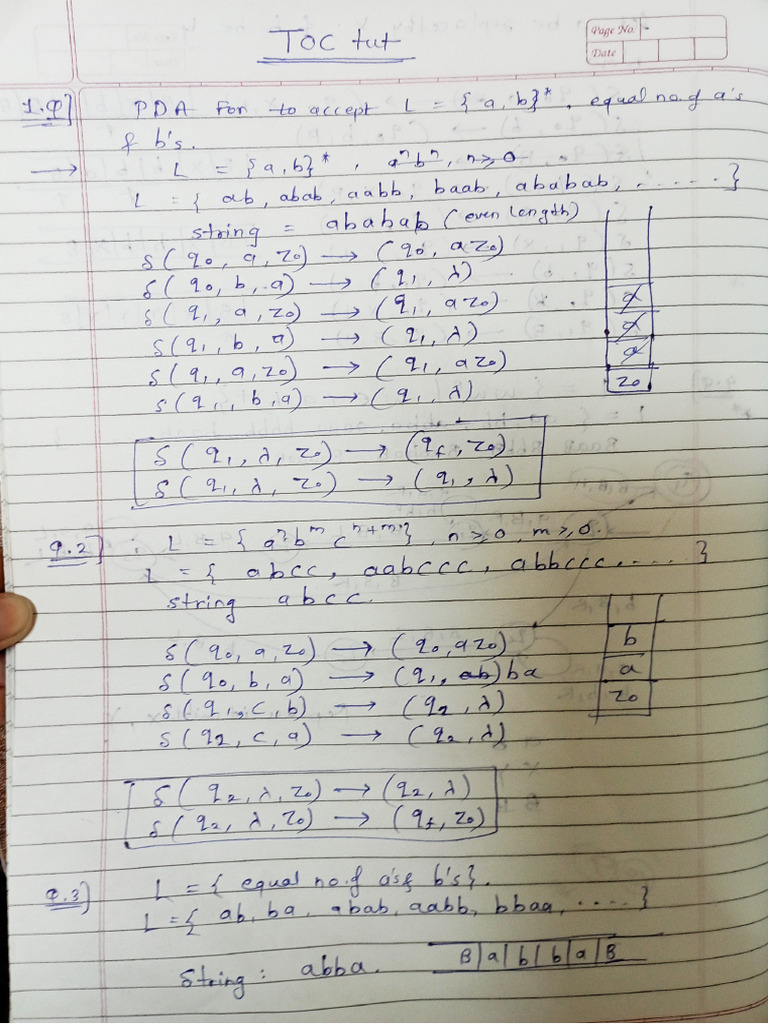 TOC tut
Page No.
Date
1.Q] PDA for to accept L = {a, b}*, equal no. of a's
& b's.
→ L = {a, b}*, aⁿbⁿ, n ≥ 0
L = { ab, abab, aabb, baab, ababab, ...... }
string = ababab (even length)
δ(q₀, a, z₀) → (q₀, az₀)
δ(q₀, b, a) → (q₁, λ)
δ(q₁, a, z₀) → (q₁, az₀)
δ(q₁, b, a) → (q₁, λ)
δ(q₁, a, z₀) → (q₁, az₀)
δ(q₁, b, a) → (q₁, λ)
a
a
a
z₀
δ(q₁, λ, z₀) → (q_f, z₀)
δ(q₁, λ, z₀) → (q₁, λ)
Q.2] : L = { aⁿbᵐcⁿ⁺ᵐ }, n ≥ 0, m ≥ 0.
L = { abcc, aabccc, abbccc, ..... }
string abcc.
δ(q₀, a, z₀) → (q₀, az₀)
δ(q₀, b, a) → (q₁, ab) ba
δ(q₁, c, b) → (q₂, λ)
δ(q₂, c, a) → (q₂, λ)
b
a
z₀
δ(q₂, λ, z₀) → (q₂, λ)
δ(q₂, λ, z₀) → (q_f, z₀)
Q.3] L = { equal no. of a's & b's }.
L = { ab, ba, abab, aabb, bbaa, ..... }
String : abba. B | a | b | b | a | B